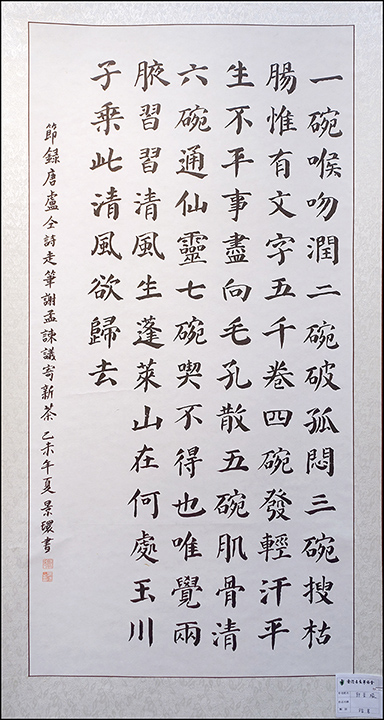 一碗喉吻潤二碗破孤悶三碗搜枯
腸惟有文字五千卷四碗發輕汗平
生不平事盡向毛孔散五碗肌骨清
六碗通仙靈七碗喫不得也唯覺兩
腋習習清風生蓬萊山在何處玉川
子乘此清風欲歸去
節錄唐盧仝詩走筆謝孟諫議寄新茶 乙未午夏 景環書